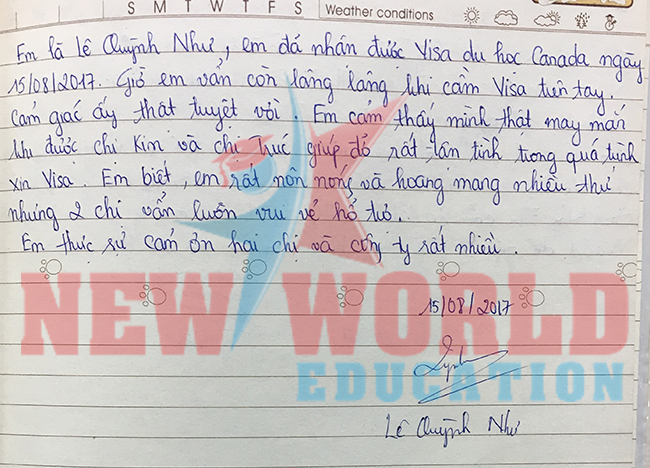 S M T W T F S Weather conditions
Em là Lê Quỳnh Như, em đã nhận được Visa du học Canada ngày
15/08/2017. Giờ em vẫn còn lâng lâng khi cầm Visa trên tay.
Cảm giác ấy thật tuyệt vời. Em cảm thấy mình thật may mắn
khi được chị Kim và chị Trúc giúp đỡ rất tận tình trong quá trình
xin Visa. Em biết, em rất nôn nóng và hoang mang nhiều thứ
nhưng 2 chị vẫn luôn vui vẻ hỗ trợ.
Em thực sự cảm ơn hai chị và công ty rất nhiều.
15/08/2017
NEW WORLD
EDUCATION
Lê Quỳnh Như